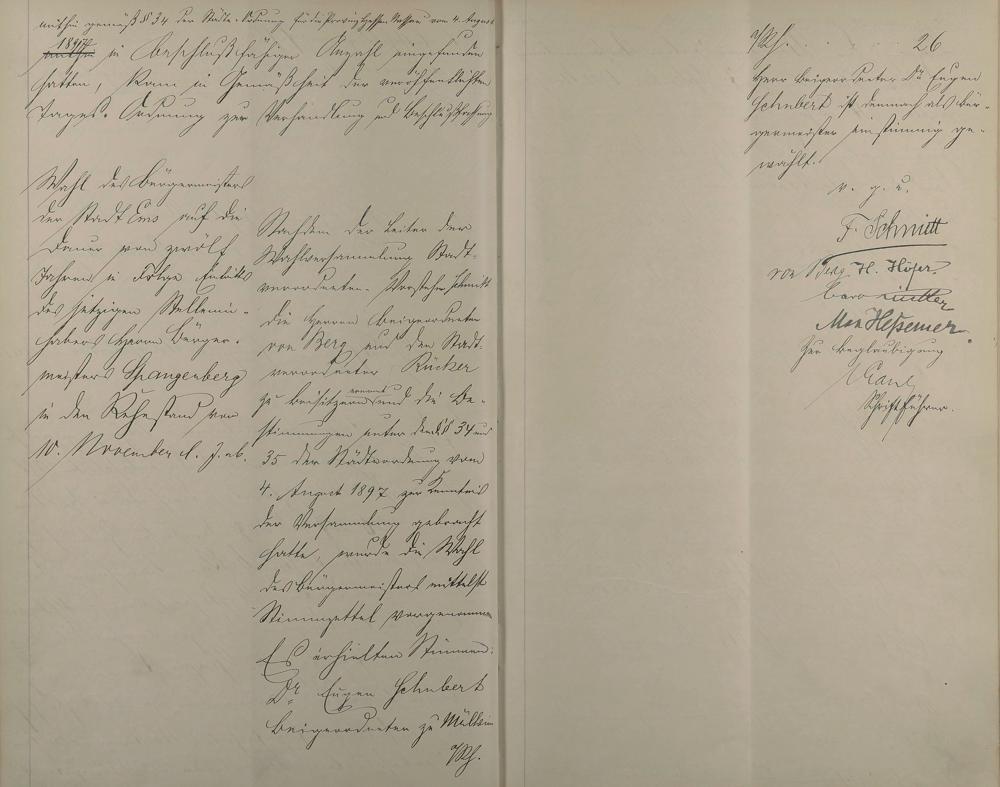 mithin gemäß §§ 34 der Städte-Ordnung für die Provinz Hessen Nassau vom 4. August
1897 in beschlußfähiger Anzahl eingefunden
hatten, kam in Gemäßheit der veröffentlichten
Tages-Ordnung zur Verhandlung und Beschlußfassung
Wahl des Bürgermeisters
der Stadt Ems auf die
Dauer von zwölf
Jahren in Folge Eintritts
des jetzigen Stellenin-
habers Herrn Bürger-
meisters Spangenberg
in den Ruhestand vom
10. November d. J. ab.
Nachdem der Leiter der
Wahlversammlung Stadt-
verordneten-Vorsteher Schmitt
die Herren Beigeordneten
von Berg und den Stadt-
verordneten Rücker
zu Beisitzern ernannt und die Be-
stimmungen unter den §§ 34 und
35 der Städteordnung vom
4. August 1897 zur Kenntnis
der Versammlung gebracht
hatte, wurde die Wahl
des Bürgermeisters mittelst
Stimmzettel vorgenommen
Es erhielten Stimmen:
Dr Eugen Schubert
Beigeordneter zu Mülheim
26
Herr Beigeordneter Dr Eugen
Schubert ist demnach als Bür-
germeister einstimmig ge-
wählt.
v. g. u.
F. Schmitt
von Berg H. Höfer
Max Heßemer
Zur Beglaubigung
Schriftführer.